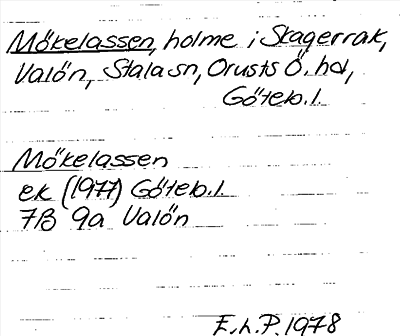 Mökelassen, holme i Skagerrak,
Valön, Stala sn, Orusts Ö. hd,
Göteb.l.
Mökelassen
ek (1977) Göteb.l.
7B 9a Valön
E.h.P. 1978